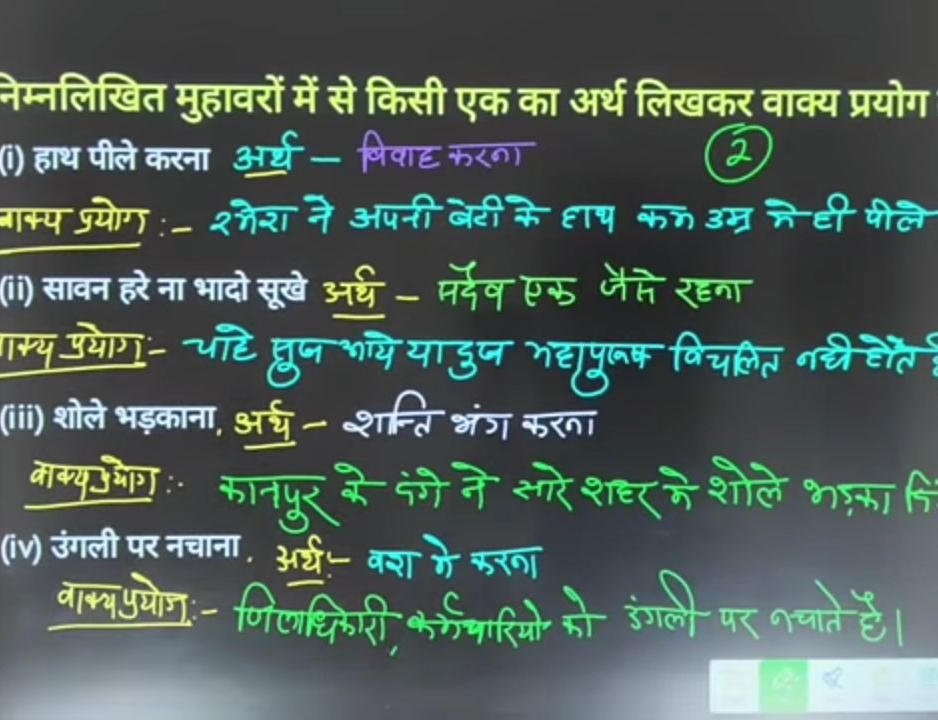 निम्नलिखित मुहावरों में से किसी एक का अर्थ लिखकर वाक्य प्रयोग
(i) हाथ पीले करना अर्थ – विवाह करना
2
वाक्य प्रयोग :– रमेश ने अपनी बेटी के हाथ कम उम्र मे ही पीले
(ii) सावन हरे ना भादो सूखे अर्थ – सदैव एक जैसे रहना
वाक्य प्रयोग:- चाहे सुख आये या दुख महापुरूष विचलित नही होते
(iii) शोले भड़काना, अर्थ – शान्ति भंग करना
वाक्य प्रयोग :- कानपुर के दंगे ने सारे शहर मे शोले भड़का
(iv) उंगली पर नचाना . अर्थ:- वश मे करना
वाक्य प्रयोग:- जिलाधिकारी, कर्मचारियो को उंगली पर नचाते है।